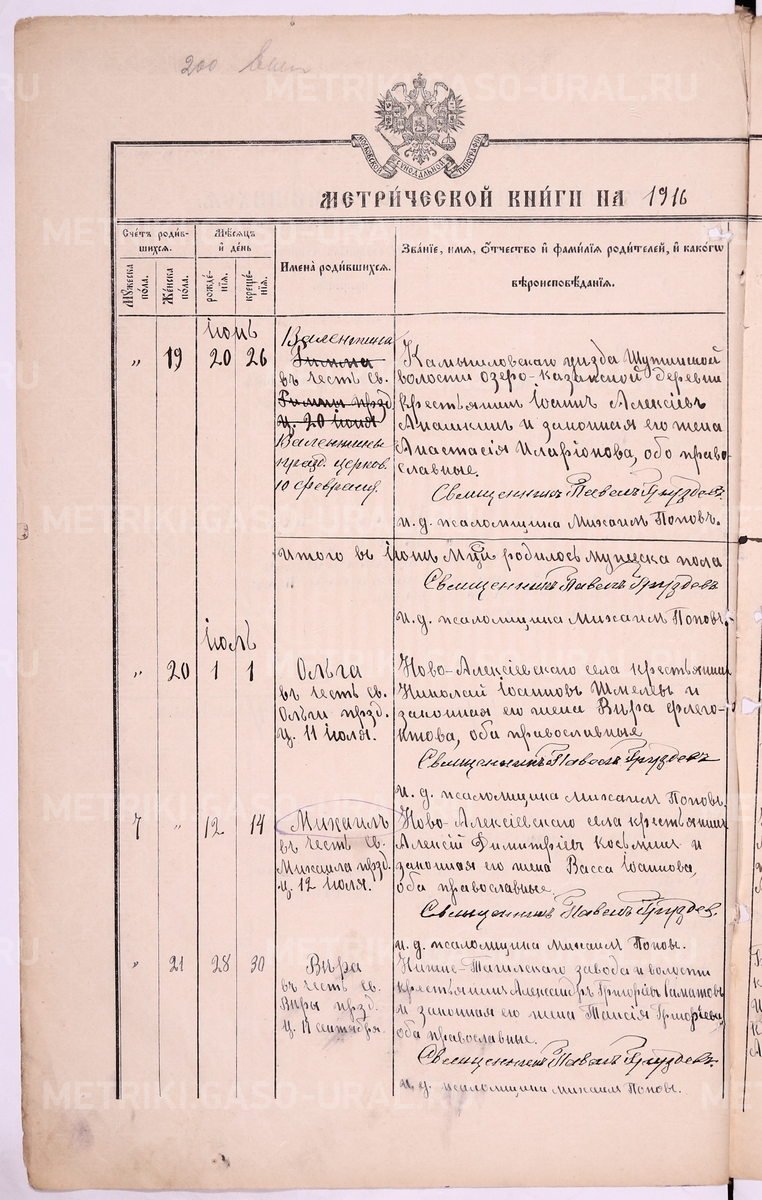 METRIKI.GASO-URAL.RU
200
МОСКОВСКОЙ СѴНОДАЛЬНОЙ ТИПОГРАФІИ
МЕТРИ́ЧЕСКОЙ КНИ́ГИ НА 1916
Сче́тъ роди́в-
шихся.
Му́жеска
по́ла.
Же́нска
по́ла.
Мѣ́сяцъ
и҆ де́нь
рожде́-
нїѧ.
креще́-
нїѧ.
И҆мена̀ роди́вшихся.
Зва́нїе, и҆́мѧ, ѻ҆́тчество и҆ фами́лїѧ роди́телей, и҆ како́гѡ
вѣроисповѣ́данїѧ.
Іюнь
" 19 20 26
Валентина
Римма
въ честь св.
Риммы прзд.
ц. 20 іюня
Валентины
празд. церков.
10 февраля.
Камышловскаго уѣзда
волости озеро-казанской деревни
крестьянинъ Іоаннъ Алексіевъ
и законная его жена
Анастасія Иларіонова, обо право-
славные.
Священникъ Павелъ Груздевъ.
и. д. псаломщика Михаилъ Поповъ.
Итого въ Іюнѣ м-цѣ родилось мужеска пола
Священникъ Павелъ Груздевъ
и. д. псаломщика Михаилъ Поповъ.
Іюль
" 20 1 1
Ольга
въ честь св.
Ольги прзд.
ц. 11 іюля.
Ново-Алексіевскаго села крестьянинъ
Николай Іоанновъ Шмелевъ и
законная его жена Вѣра Флего-
нтова, оба православные
Священникъ Павелъ Груздевъ
и. д. псаломщика Михаилъ Поповъ.
7 " 12 14
Михаилъ
въ честь св.
Михаила прзд.
ц. 12 іюля.
Ново-Алексіевскаго села крестьянинъ
Алексій Димитріевъ Косьминъ и
законная его жена Васса Іоаннова,
оба православные
Священникъ Павелъ Груздев.
и. д. псаломщика Михаилъ Поповъ.
" 21 28 30
Вѣра
въ честь св.
Вѣры прзд.
ц. 17 сентября.
Нижне-Тагилскаго завода и волости
крестьянинъ Александръ Григоріевъ
и законная его жена Таисія Григорьева,
оба православные.
Священникъ Павелъ Груздевъ.
и. д. псаломщика Михаилъ Поповъ.